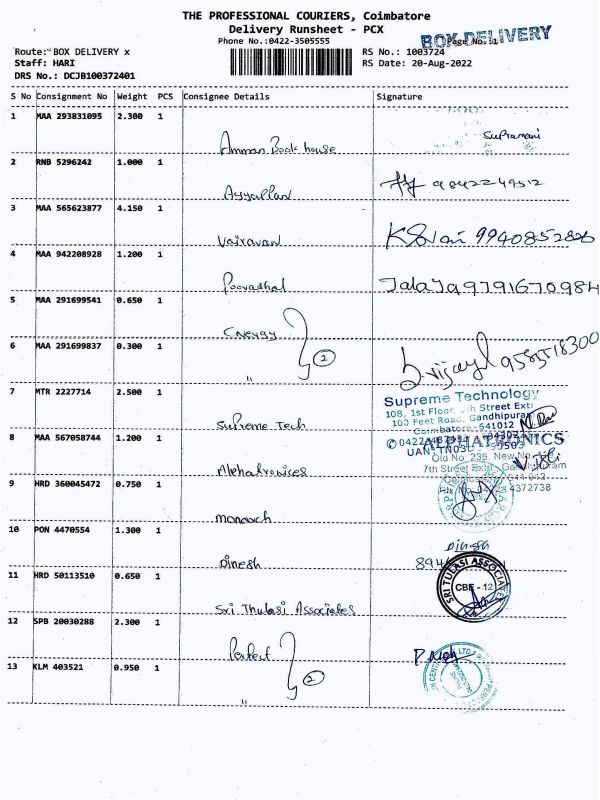 THE PROFESSIONAL COURIERS, Coimbatore
Delivery Runsheet - PCX
Phone No.:0422-3505555
BOX DELIVERY
Page No. 1
Route: BOX DELIVERY x
RS No.: 1003724
Staff: HARI
RS Date: 20-Aug-2022
DRS No.: DCJB100372401
S No Consignment No Weight PCS Consignee Details Signature
1 MAA 293831095 2.300 1
Amman Book house
2 RNB 5296242 1.000 1
Ayyappan 9842249512
3 MAA 565623877 4.150 1
Vairavan
4 MAA 942208928 1.200 1
5 MAA 291699541 0.650 1
Energy
6 MAA 291699837 0.300 1
2
"
7 MTR 2227714 2.500 1
Supreme Technology
100 Feet Road, Gandhipuram
Coimbatore - 641012
Supreme Tech
8 MAA 567058744 1.200 1
ALPHATRONICS
Alphatronices
9 HRD 360045472 0.750 1
monarch
10 PON 4470554 1.300 1
Dinesh
Dinesh
11 HRD 50113510 0.650 1
SRI TULASI ASSOCIATES
CBE - 12
Sri Thulasi Associates
12 SPB 20030288 2.300 1
Perfect
13 KLM 403521 0.950 1
2
"